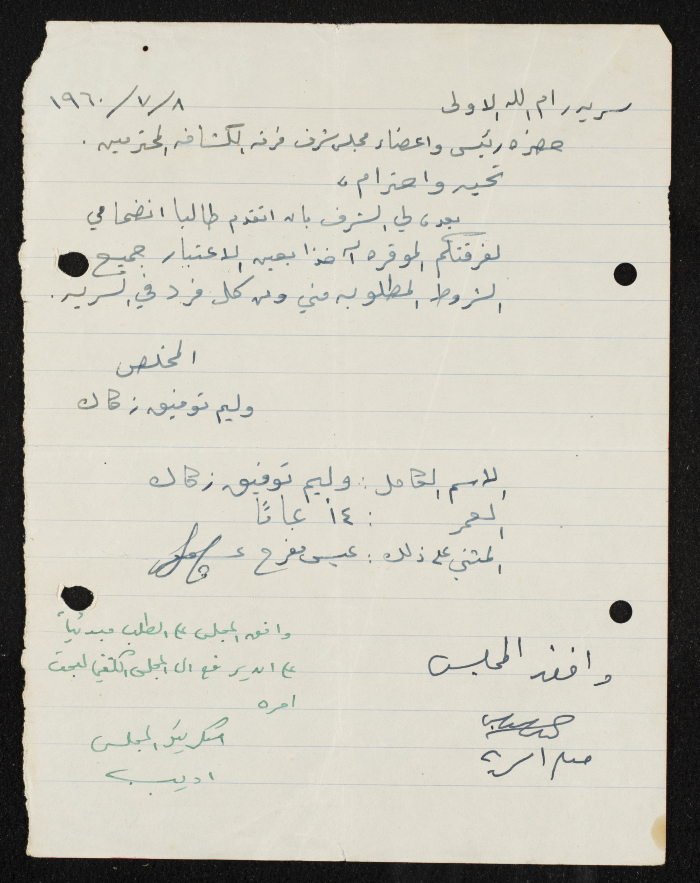 سريه رام الله الاولى
١٩٦٠/٧/٨
حضرة رئيس واعضاء مجلس شرف فرقة الكشافه المحترمين .
تحيه واحترام ،،
بعد، لي الشرف بان اتقدم طالبا انضمامي
لفرقتكم الموقره آخذا بعين الاعتبار جميع
الشروط المطلوبه مني ومن كل فرد في السريه .
المخلص
وليم توفيق زكاك
الاسم الكامل : وليم توفيق زكاك
العمر : ١٤ عامًا
المثني على ذلك : عيسى مفرح
وافق المجلس على الطلب مبدئياً
على ان يرفع الى المجلس الكشفي لبحث
امره
سكرتير المجلس
اديب
وافق المجلس
معلم السريه